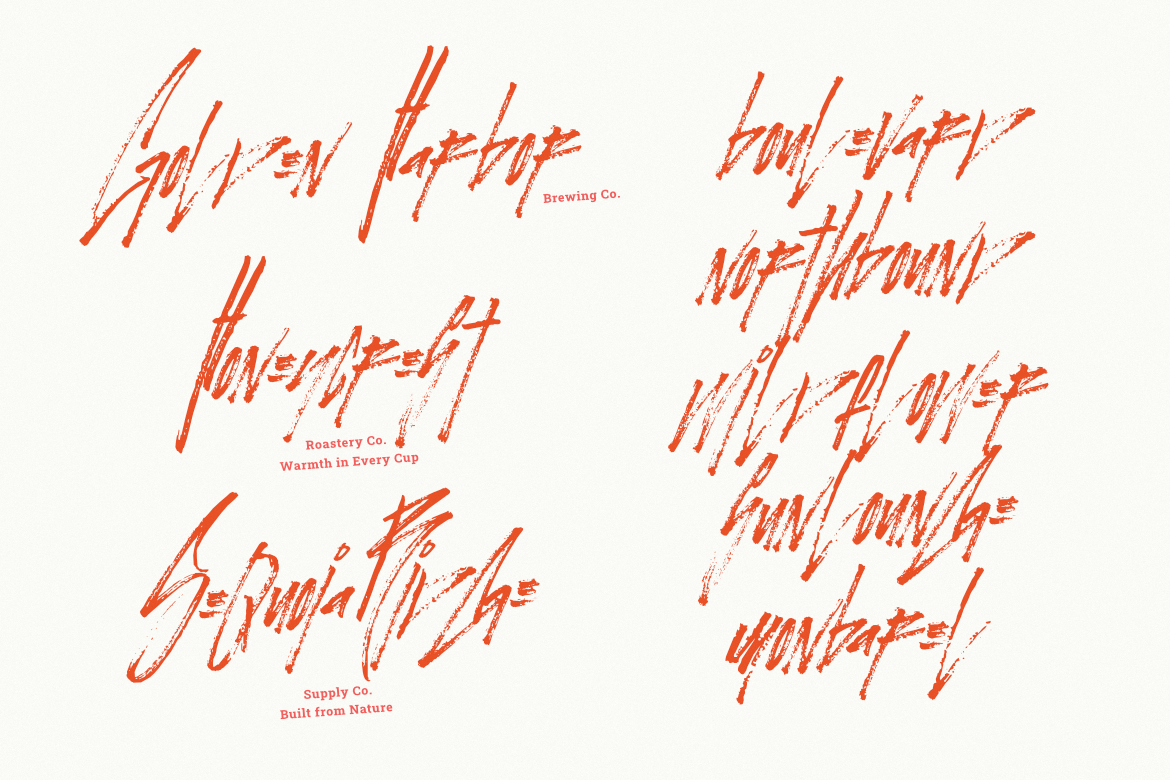 Golden Harbor
Brewing Co.
Hovencrest
Roastery Co.
Warmth in Every Cup
Sequoia Ridge
Supply Co.
Built from Nature
boulevard
northbound
sunlounge